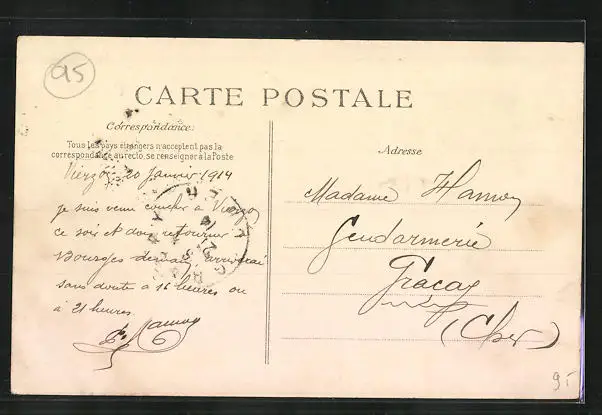 95
CARTE POSTALE
Correspondance:
Tous les pays étrangers n'acceptent pas la
correspondance au recto, se renseigner à la Poste
Adresse
Vierzon 20 Janvier 1914
je suis venu coucher à Vierzon
ce soir et dois retourner à
Bourges demain, arriverai
sans doute à 16 heures ou
à 21 heures.
Hamon
Madame Hamon
Gendarmerie
Graçay
(Cher)
9.-